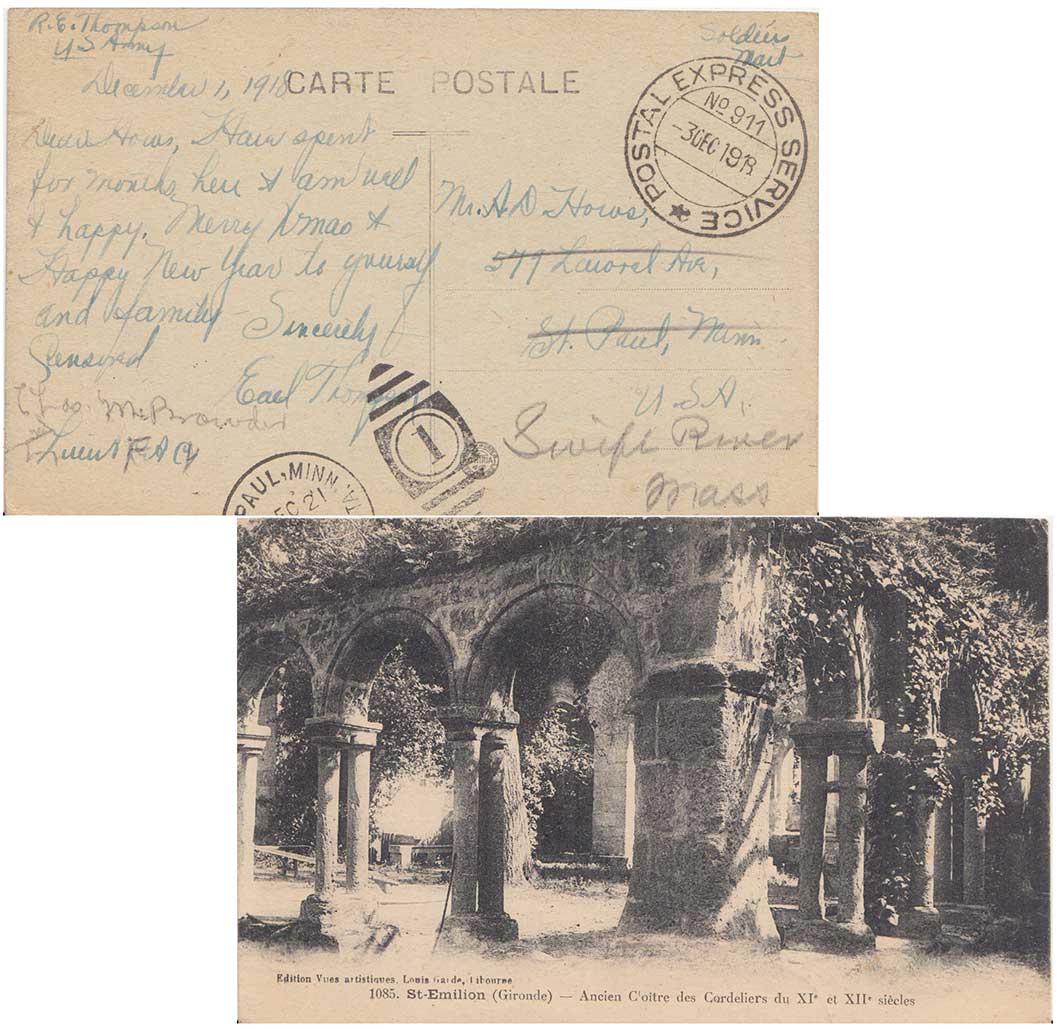 R.E. Thompson
U S Army
Soldiers
Mail
December 1, 1918
CARTE POSTALE
POSTAL EXPRESS SERVICE
No 911
-3DEC 1918
Dear Hows, I have spent
for months here & am well
& happy. Merry Xmas &
Happy New Year to yourself
and family Sincerely
Censored
Earl Thompson
Chas. M. Browder
Lieut F A
Mr. A. D. Hows,
579 Laurel Ave,
St. Paul, Minn.
U.S.A.
Swift River
Mass
1
PAUL, MINN.
EC 21
Edition Vues artistiques. Louis Garde, Libourne
1085. St-Emilion (Gironde) — Ancien C'oître des Cordeliers du XIe et XIIe siècles